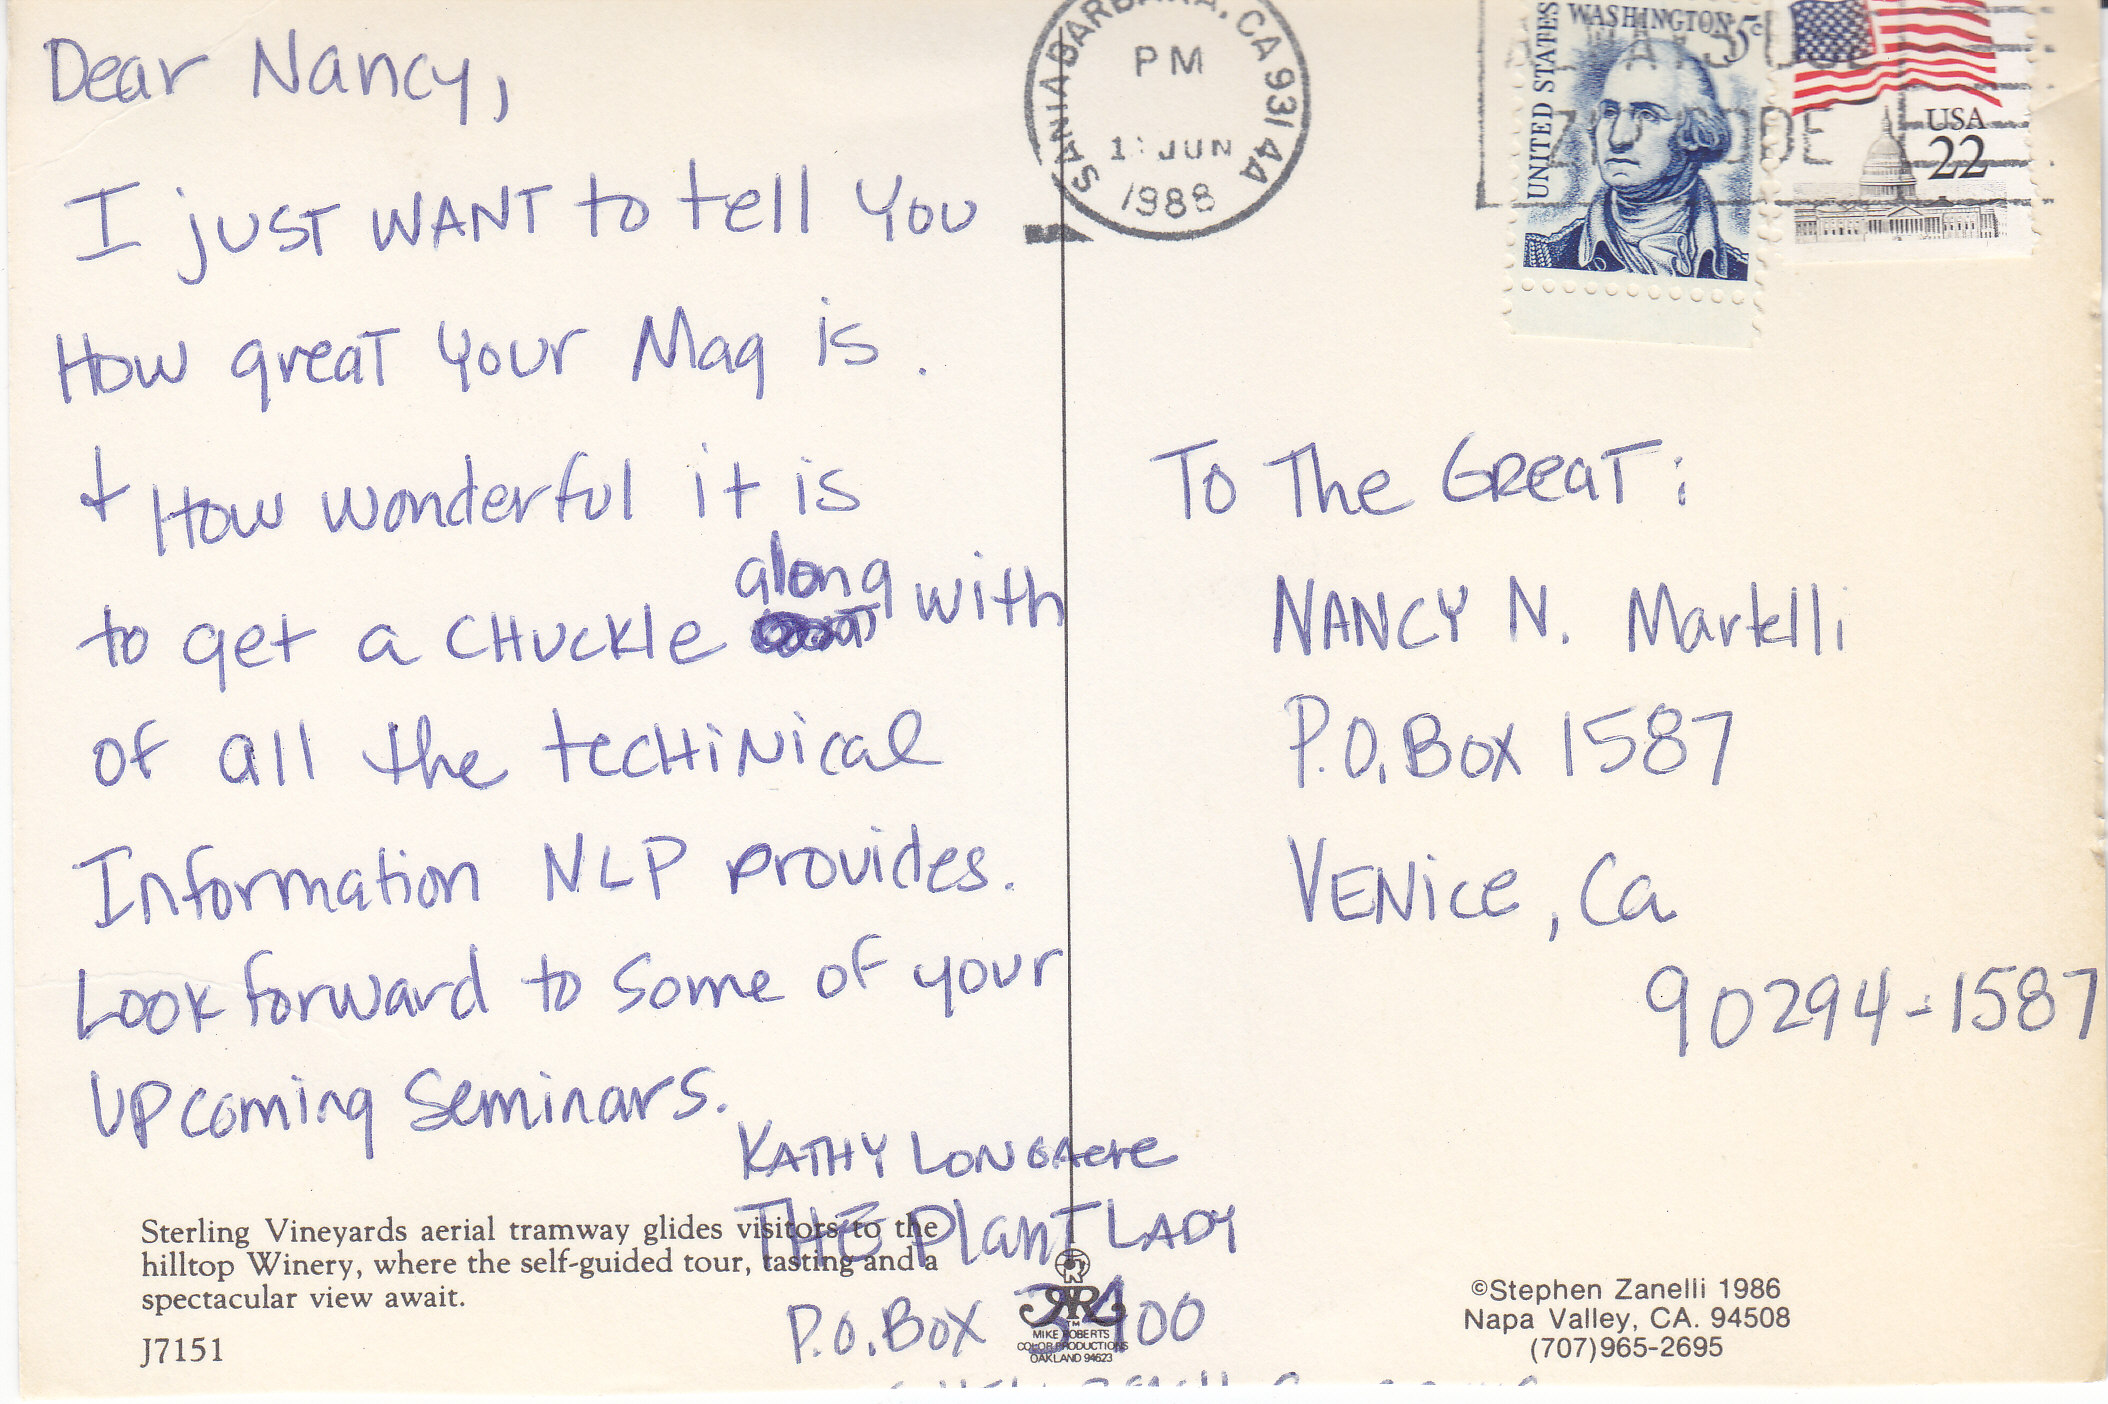 Dear Nancy,
I just WANT to tell You
How great Your Mag is.
+ How wonderful it is
along
to get a CHUCKle with
of all the tecHiNical
Information NLP provides.
Look forward to some of your
Upcoming Seminars.
KATHY LONGAcre
THE Plant LADY
P.O. Box
Sterling Vineyards aerial tramway glides visitors to the
hilltop Winery, where the self-guided tour, tasting and a
spectacular view await.
J7151
MIKE ROBERTS
COLOR PRODUCTIONS
OAKLAND 94623
SANTA BARBARA, CA 931 44
PM
JUN
1988
UNITED STATES
WASHINGTON 5c
USA
22
ZIP CODE
To The GReaT:
NANCY N. Martelli
P.O. Box 1587
VENice, Ca
90294-1587
©Stephen Zanelli 1986
Napa Valley, CA. 94508
(707)965-2695